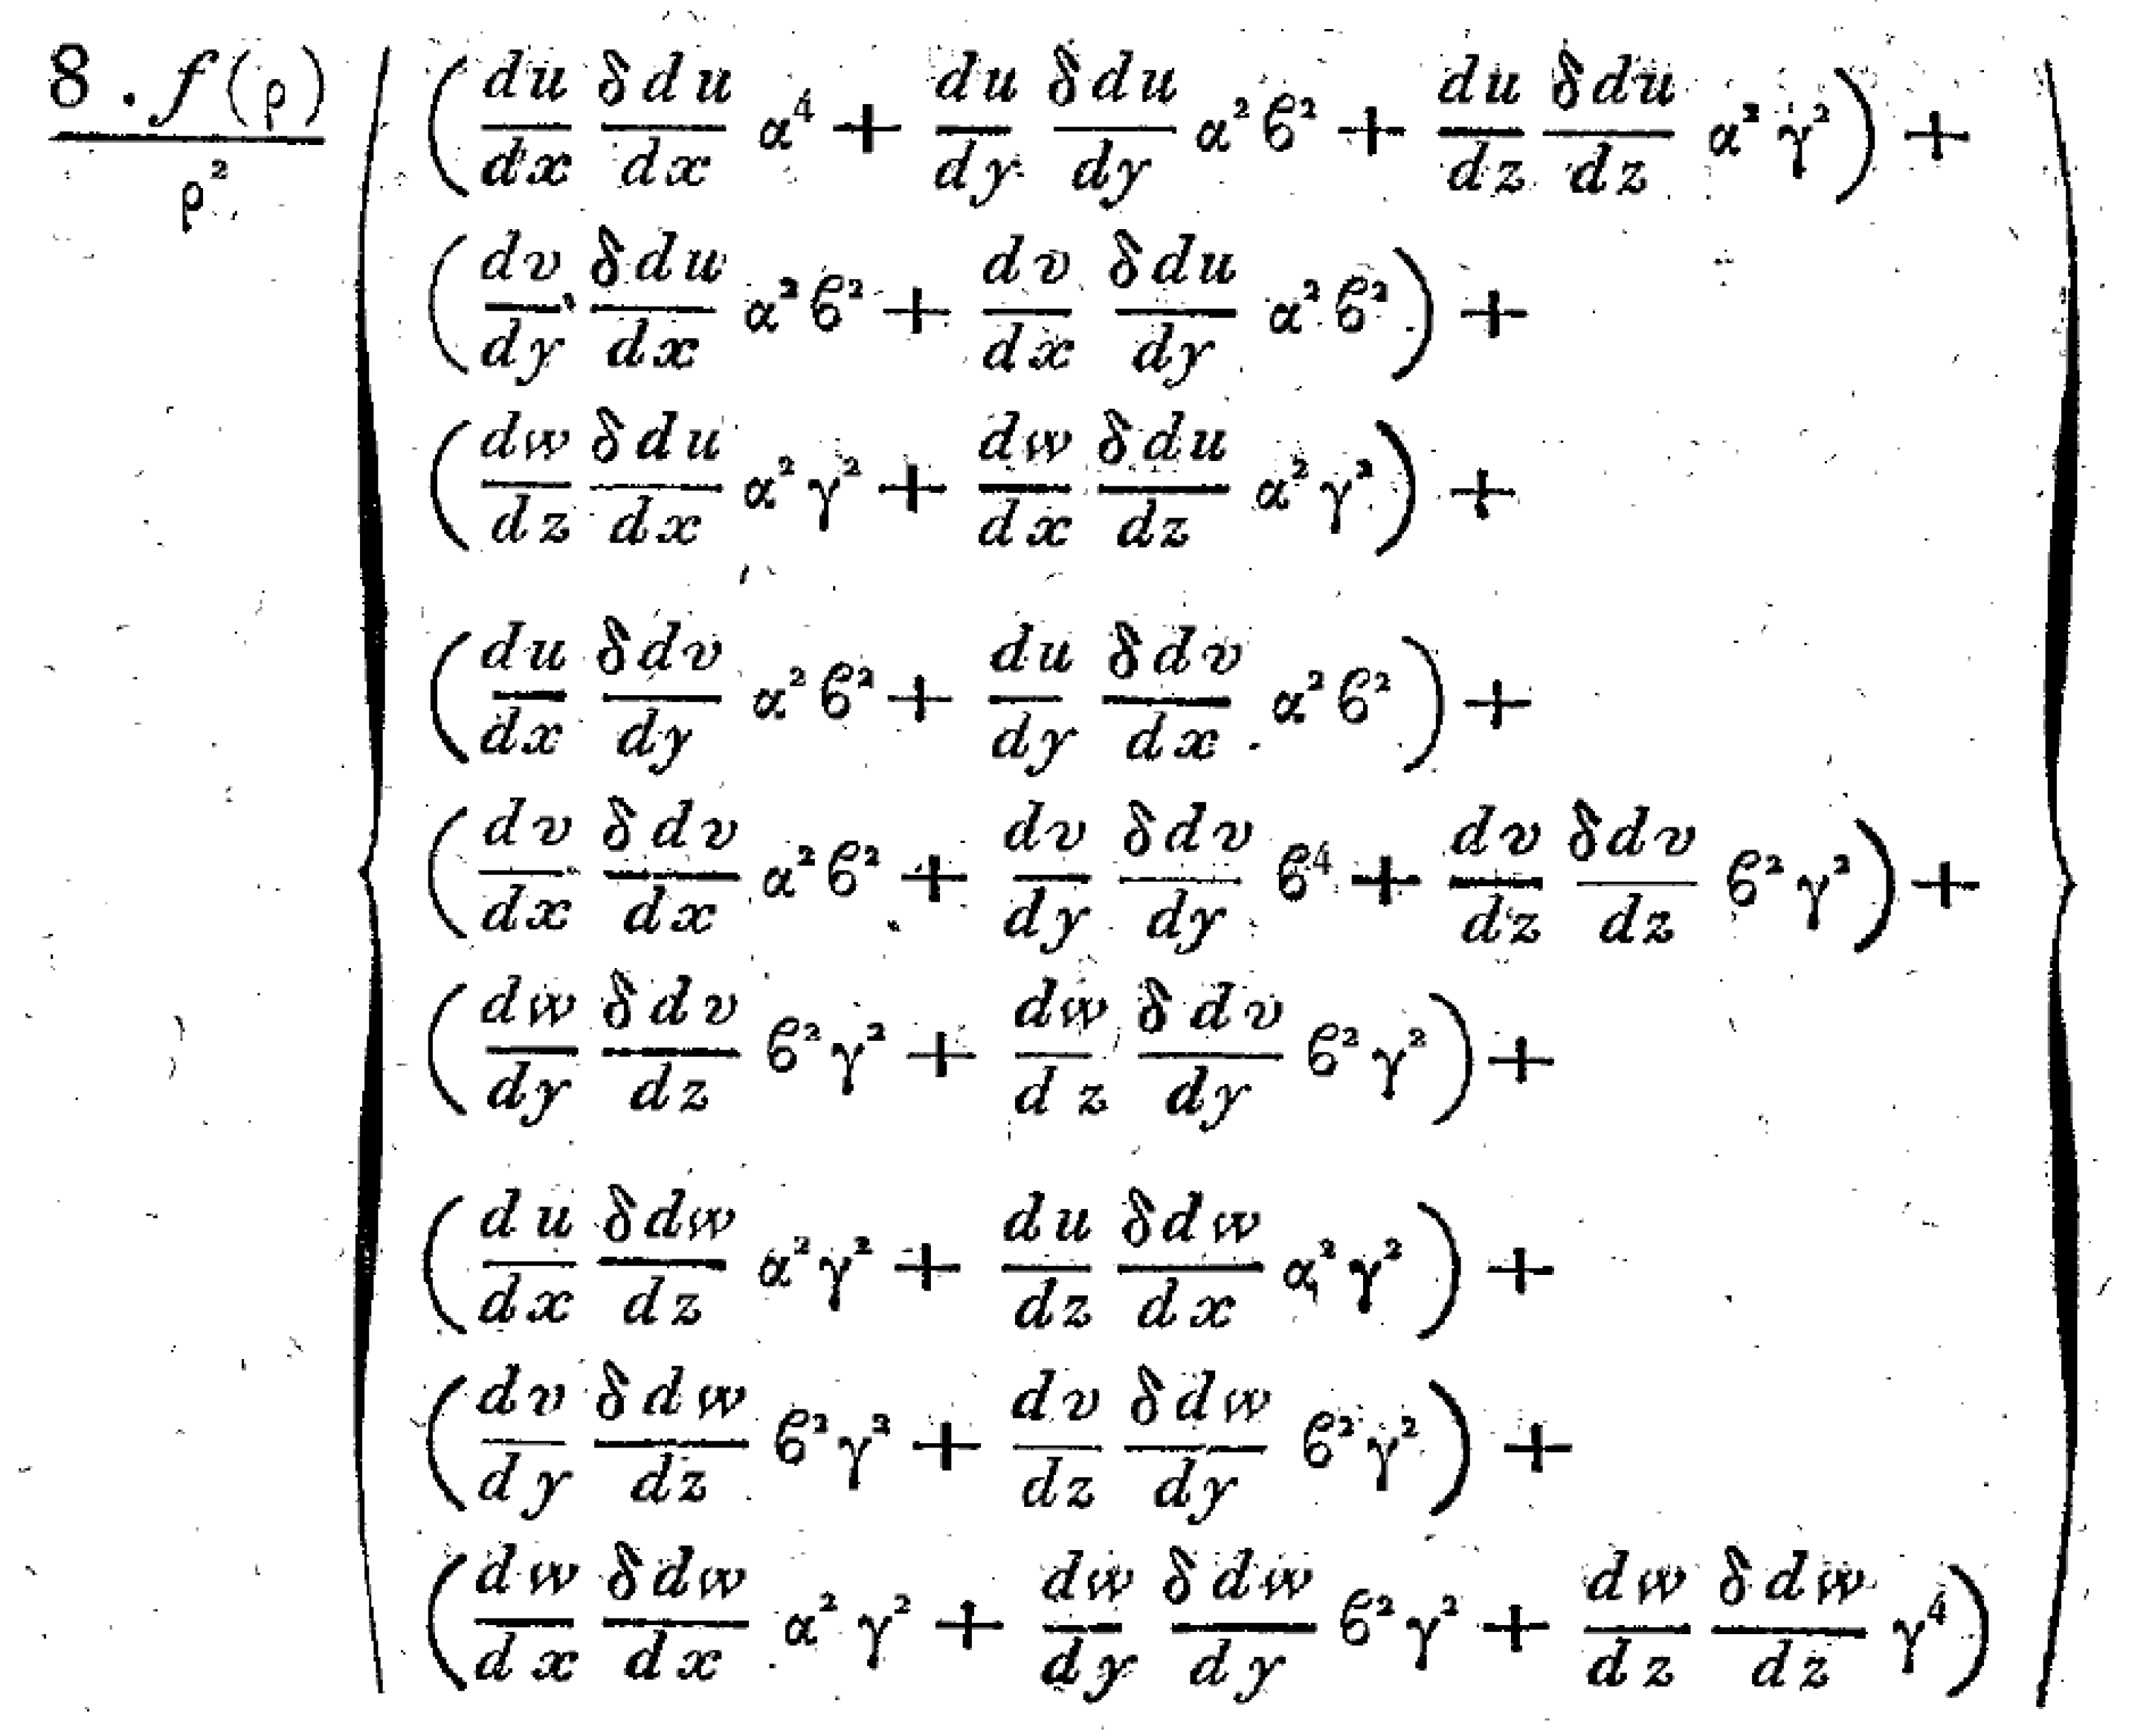 \frac{8 . f(ρ)}{ρ^2} \{ ( \frac{du}{dx} \frac{δdu}{dx} α^4 + \frac{du}{dy} \frac{δdu}{dy} α^2 ϐ^2 + \frac{du}{dz} \frac{δdu}{dz} α^2 γ^2 ) +
( \frac{dv}{dy} \frac{δdu}{dx} α^2 ϐ^2 + \frac{dv}{dx} \frac{δdu}{dy} α^2 ϐ^2 ) +
( \frac{dw}{dz} \frac{δdu}{dx} α^2 γ^2 + \frac{dw}{dx} \frac{δdu}{dz} α^2 γ^2 ) +
( \frac{du}{dx} \frac{δdv}{dy} α^2 ϐ^2 + \frac{du}{dy} \frac{δdv}{dx} α^2 ϐ^2 ) +
( \frac{dv}{dx} \frac{δdv}{dx} α^2 ϐ^2 + \frac{dv}{dy} \frac{δdv}{dy} ϐ^4 + \frac{dv}{dz} \frac{δdv}{dz} ϐ^2 γ^2 ) +
( \frac{dw}{dy} \frac{δdv}{dz} ϐ^2 γ^2 + \frac{dw}{dz} \frac{δdv}{dy} ϐ^2 γ^2 ) +
( \frac{du}{dx} \frac{δdw}{dz} α^2 γ^2 + \frac{du}{dz} \frac{δdw}{dx} α^2 γ^2 ) +
( \frac{dv}{dy} \frac{δdw}{dz} ϐ^2 γ^2 + \frac{dv}{dz} \frac{δdw}{dy} ϐ^2 γ^2 ) +
( \frac{dw}{dx} \frac{δdw}{dx} α^2 γ^2 + \frac{dw}{dy} \frac{δdw}{dy} ϐ^2 γ^2 + \frac{dw}{dz} \frac{δdw}{dz} γ^4 ) \}